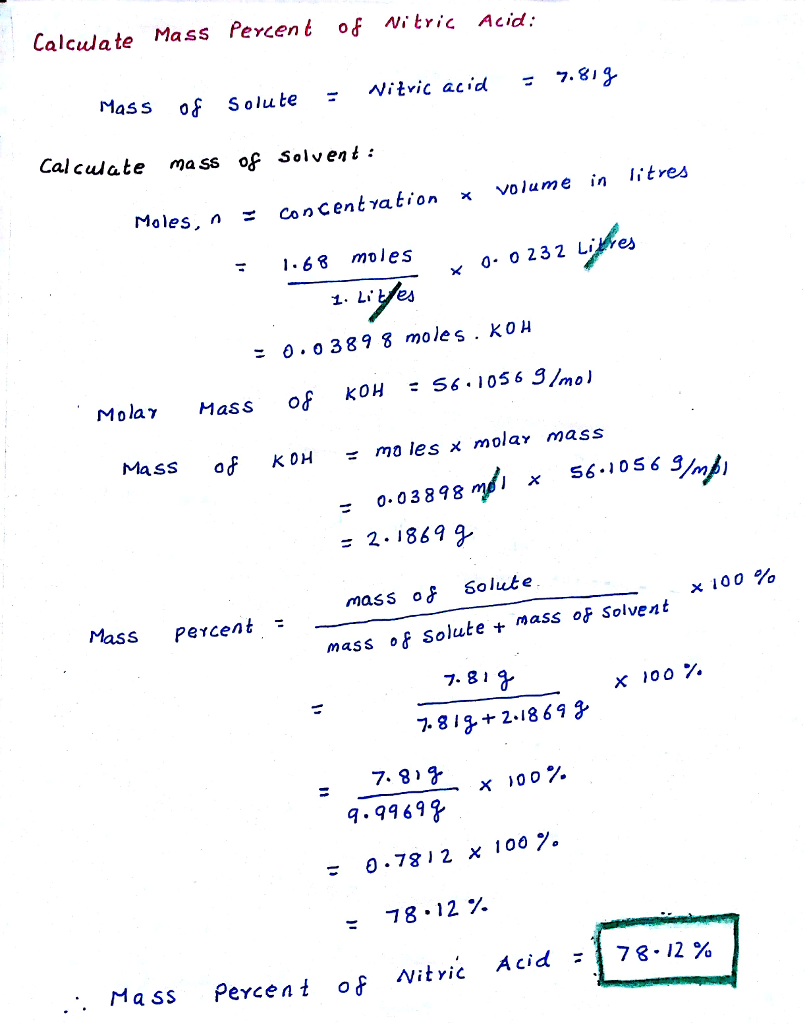 Calculate Mass Percent of Nitric Acid:
Mass of Solute = Nitric acid = 7.81g
Calculate mass of solvent:
Moles, n = concentration x volume in litres
= 1.68 moles / 1. Litres x 0.0232 Litres
= 0.03898 moles. KOH
Molar Mass of KOH = 56.1056 g/mol
Mass of KOH = moles x molar mass
= 0.03898 mol x 56.1056 g/mol
= 2.1869 g
Mass percent = mass of solute / mass of solute + mass of solvent x 100 %
= 7.81g / 7.81g + 2.1869 g x 100 %
= 7.81g / 9.9969g x 100%
= 0.7812 x 100 %
= 78.12 %
∴ Mass Percent of Nitric Acid = 78.12 %